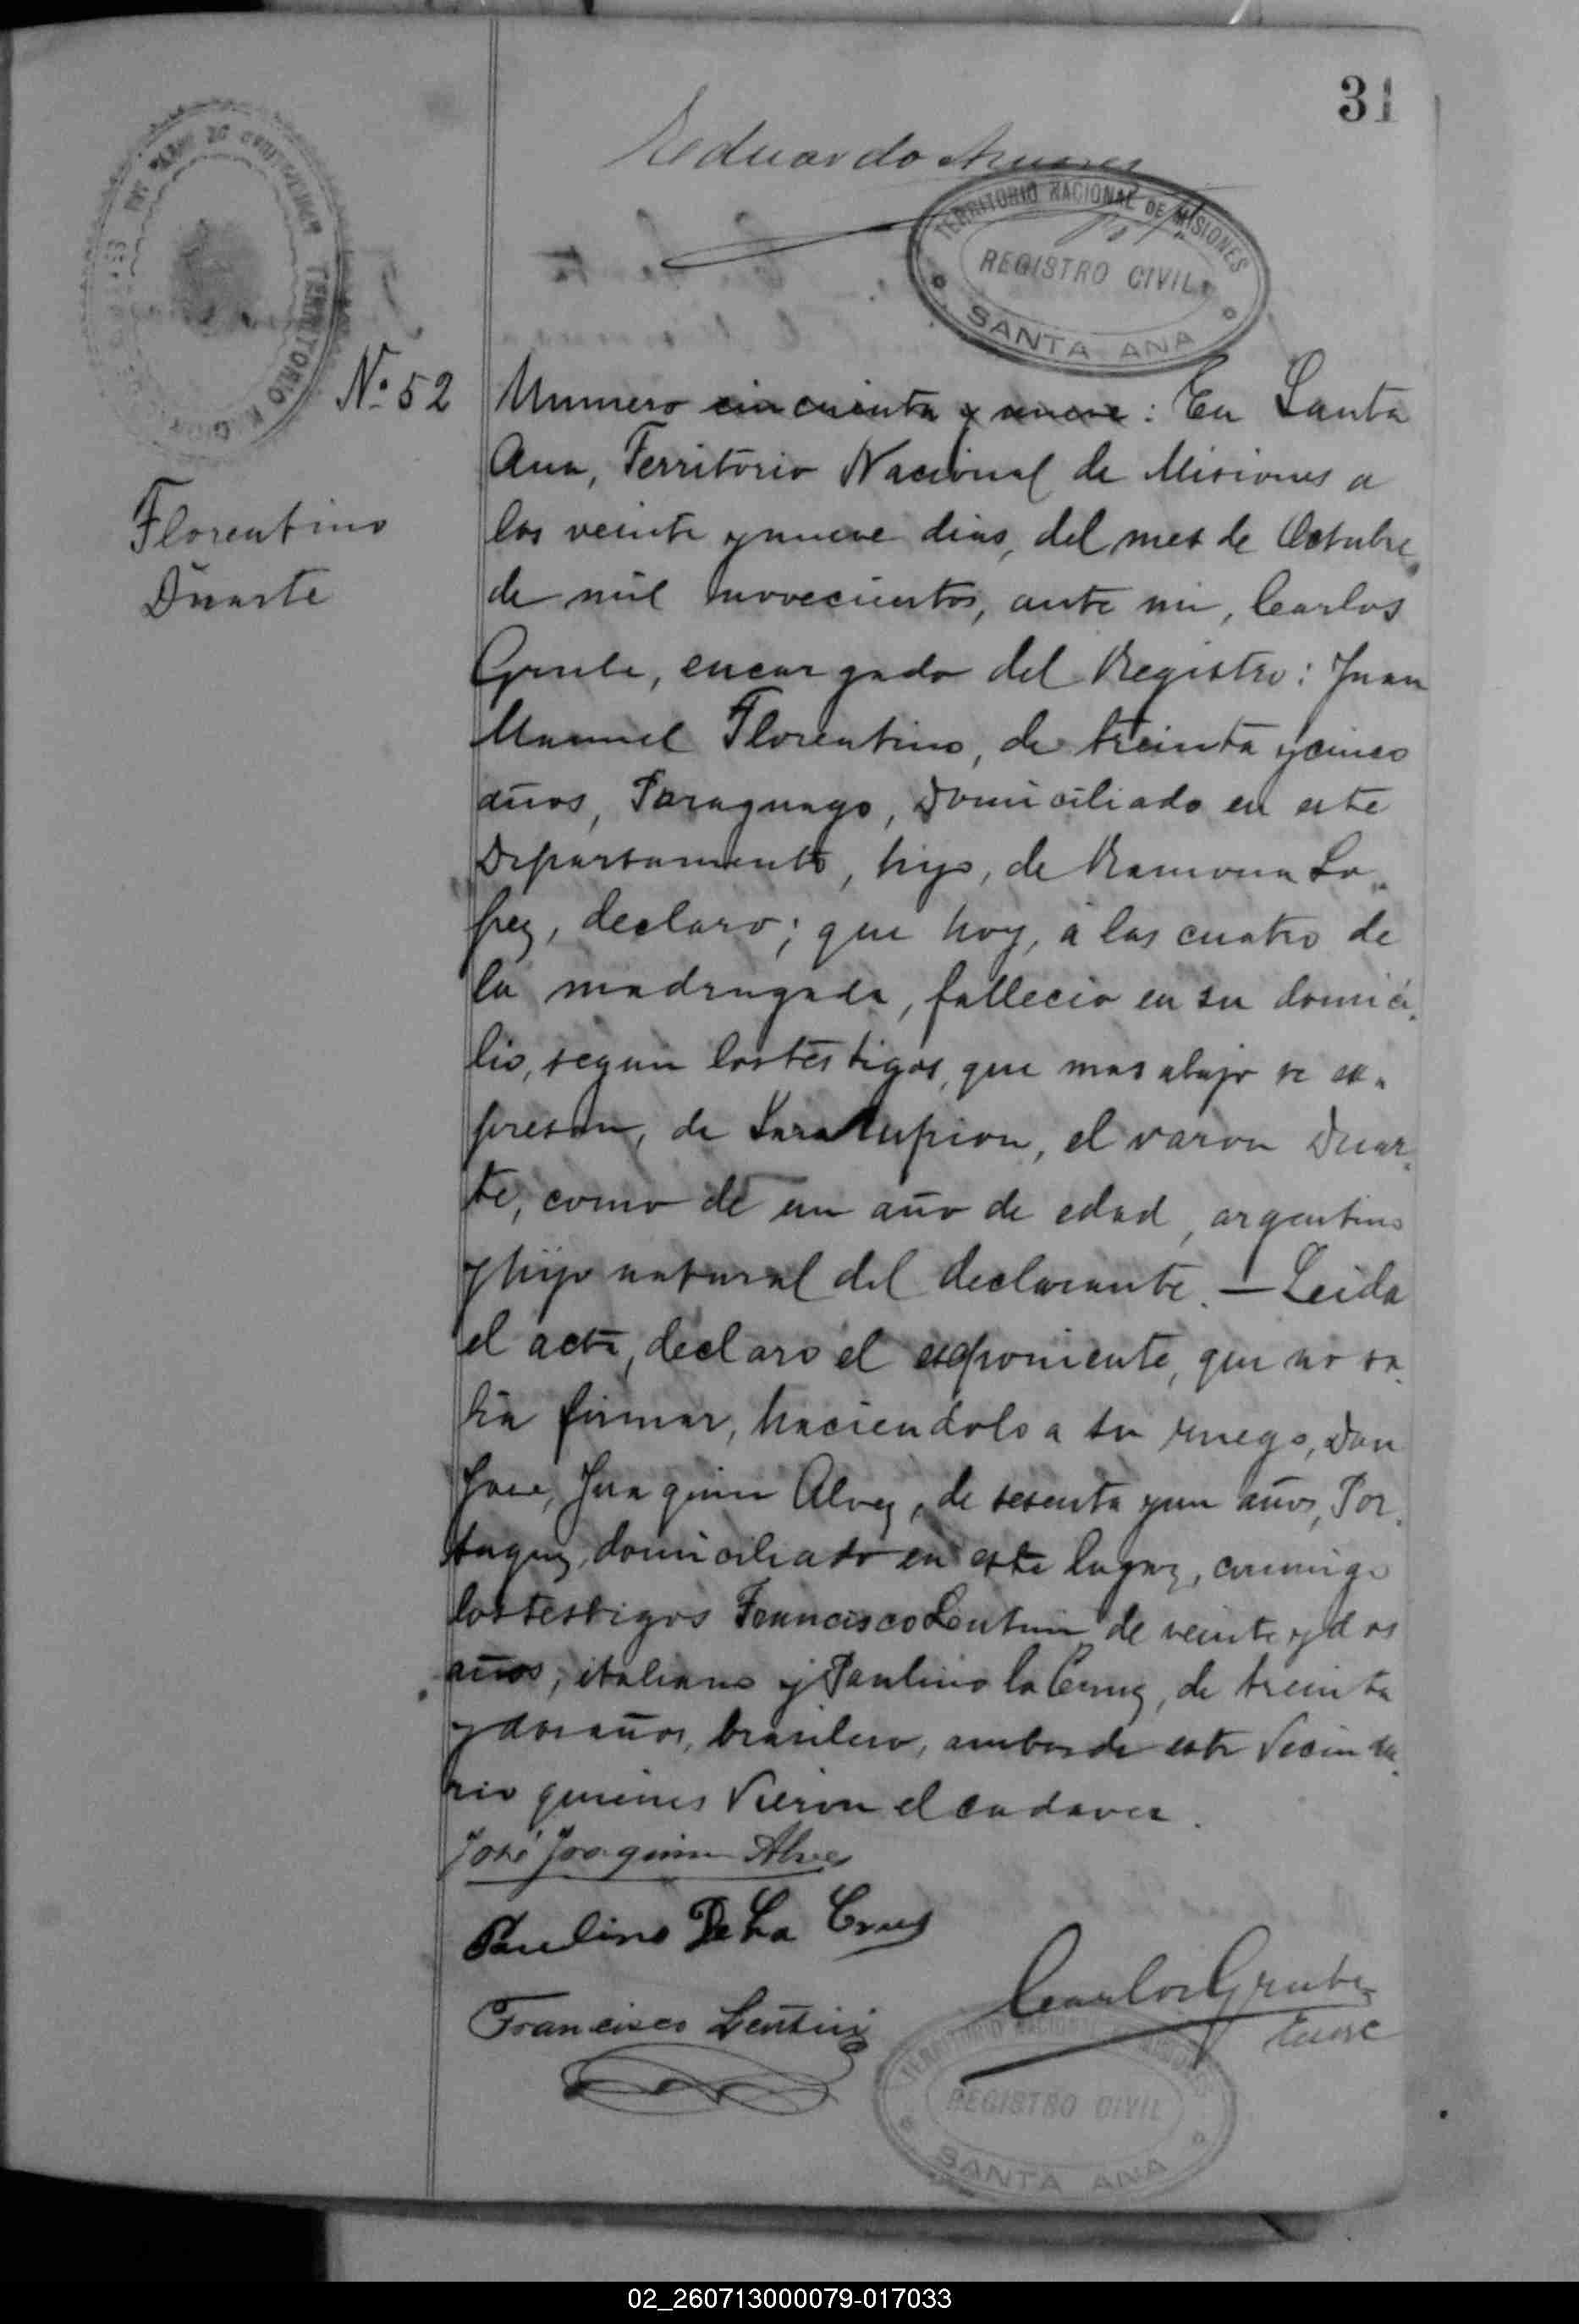 31
Eduardo
TERRITORIO NACIONAL DE MISIONES
REGISTRO CIVIL
SANTA ANA
Nº 52
Florentino
Duarte
Numero cincuenta y nueve: En Santa
Ana, Territorio Nacional de Misiones a
los veinte y nueve dias, del mes de Octubre
de mil novecientos, ante mi, Carlos
Grube, encargado del Registro: Juan
Manuel Florentino, de treinta y cinco
años, Paraguayo, domiciliado en este
Departamento, hijo, de Ramona Lo-
pez, declaro; que hoy, a las cuatro de
la madrugada, fallecio en su domici-
lio, segun los testigos, que mas abajo se ex-
presan, de Sarampion, el varon Duar-
te, como de un año de edad, argentino
y hijo natural del declarante. — Leida
el acta, declaro el exponiente, que no sa-
bia firmar, haciendolo a su ruego, Don
Jose, Juaquin Alvez, de sesenta y un años, Por-
tuguez, domiciliado en este lugar, conmigo
los testigos Francisco Lentini de veinte y dos
años, italiano y Paulino la Cruz, de treinta
y dos años, brasilero, ambos de este Vecinda-
rio quienes Vieron el cadaver.
José Joaquim Alves
Paulino De La Cruz
Francisco Lentini
Carlos Grube
Enc
TERRITORIO NACIONAL DE MISIONES
REGISTRO CIVIL
SANTA ANA
02_260713000079-017033